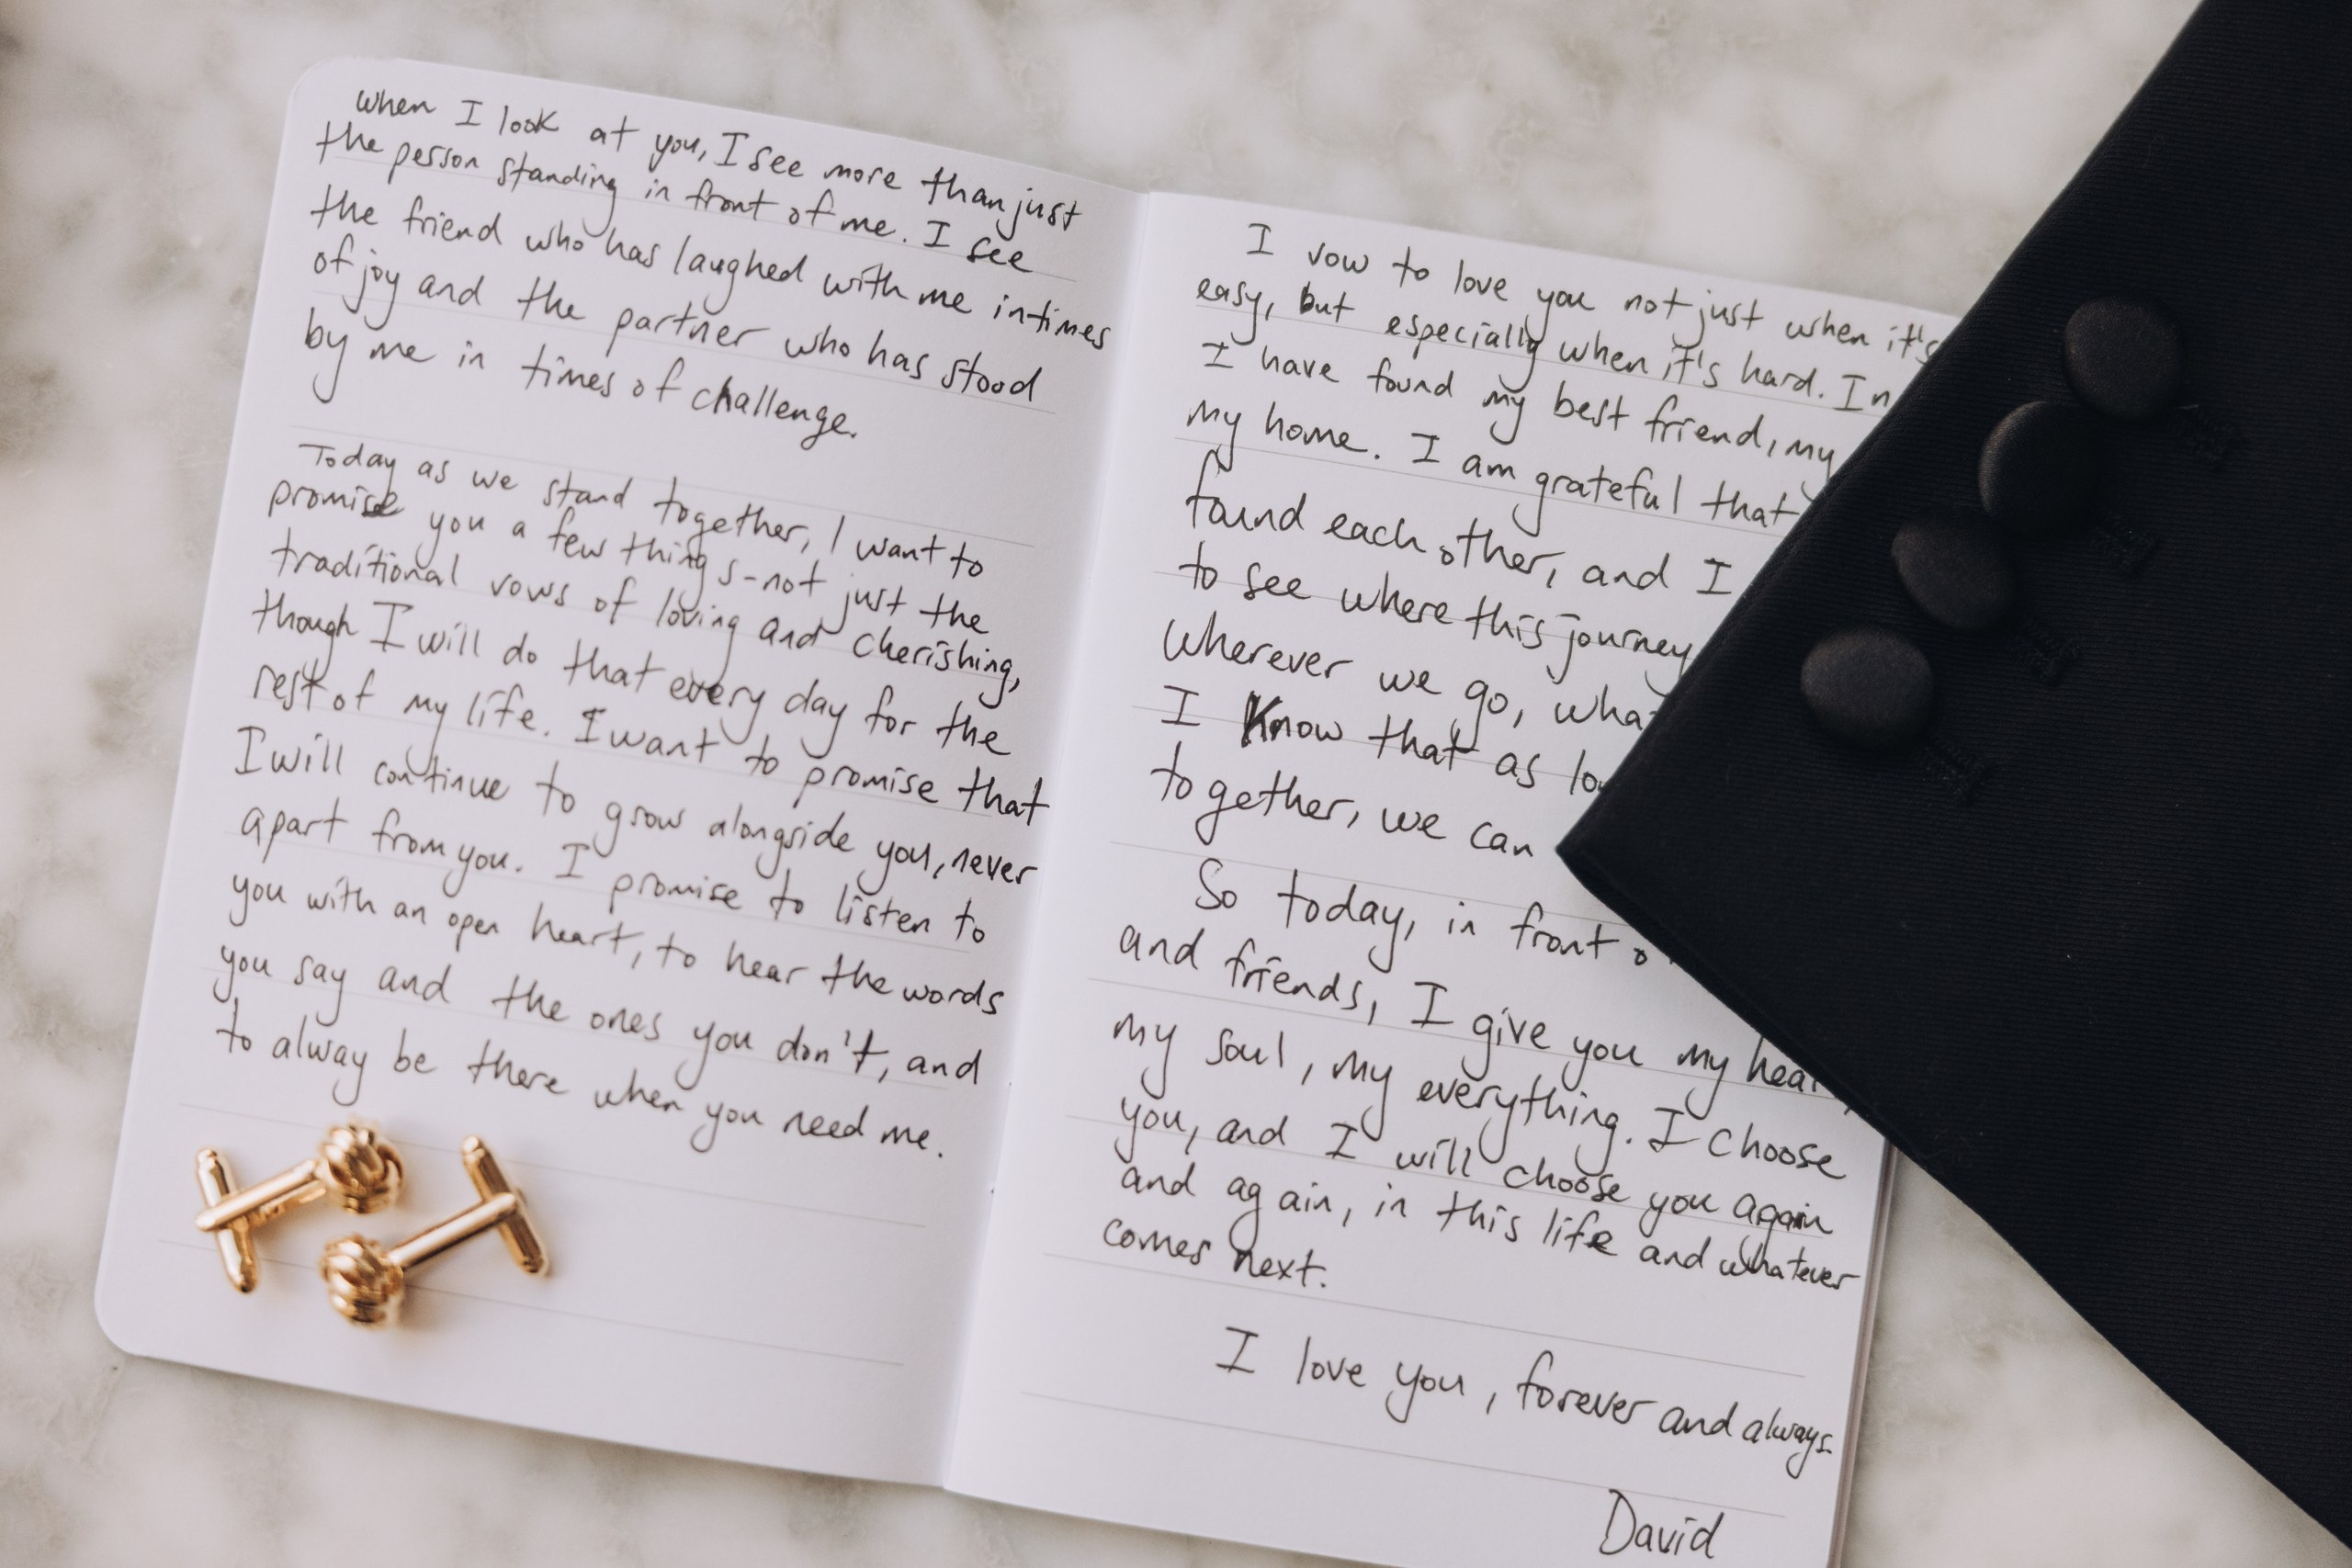 when I look at you, I see more than just
the person standing in front of me. I see
the friend who has laughed with me in times
of joy and the partner who has stood
by me in times of challenge.
Today as we stand together, I want to
promise you a few things-not just the
traditional vows of loving and cherishing,
though I will do that every day for the
rest of my life. I want to promise that
I will continue to grow alongside you, never
apart from you. I promise to listen to
you with an open heart, to hear the words
you say and the ones you don't, and
to alway be there when you need me.
I vow to love you not just when it's
easy, but especially when it's hard. In
I have found my best friend, my
my home. I am grateful that
found each other, and I
to see where this journey
Wherever we go,
I Know that as
together, we can
So today, in front
and friends, I give you my
my soul, my everything. I choose
you, and I will choose you again
and again, in this life and whatever
comes next.
I love you, forever and always.
David